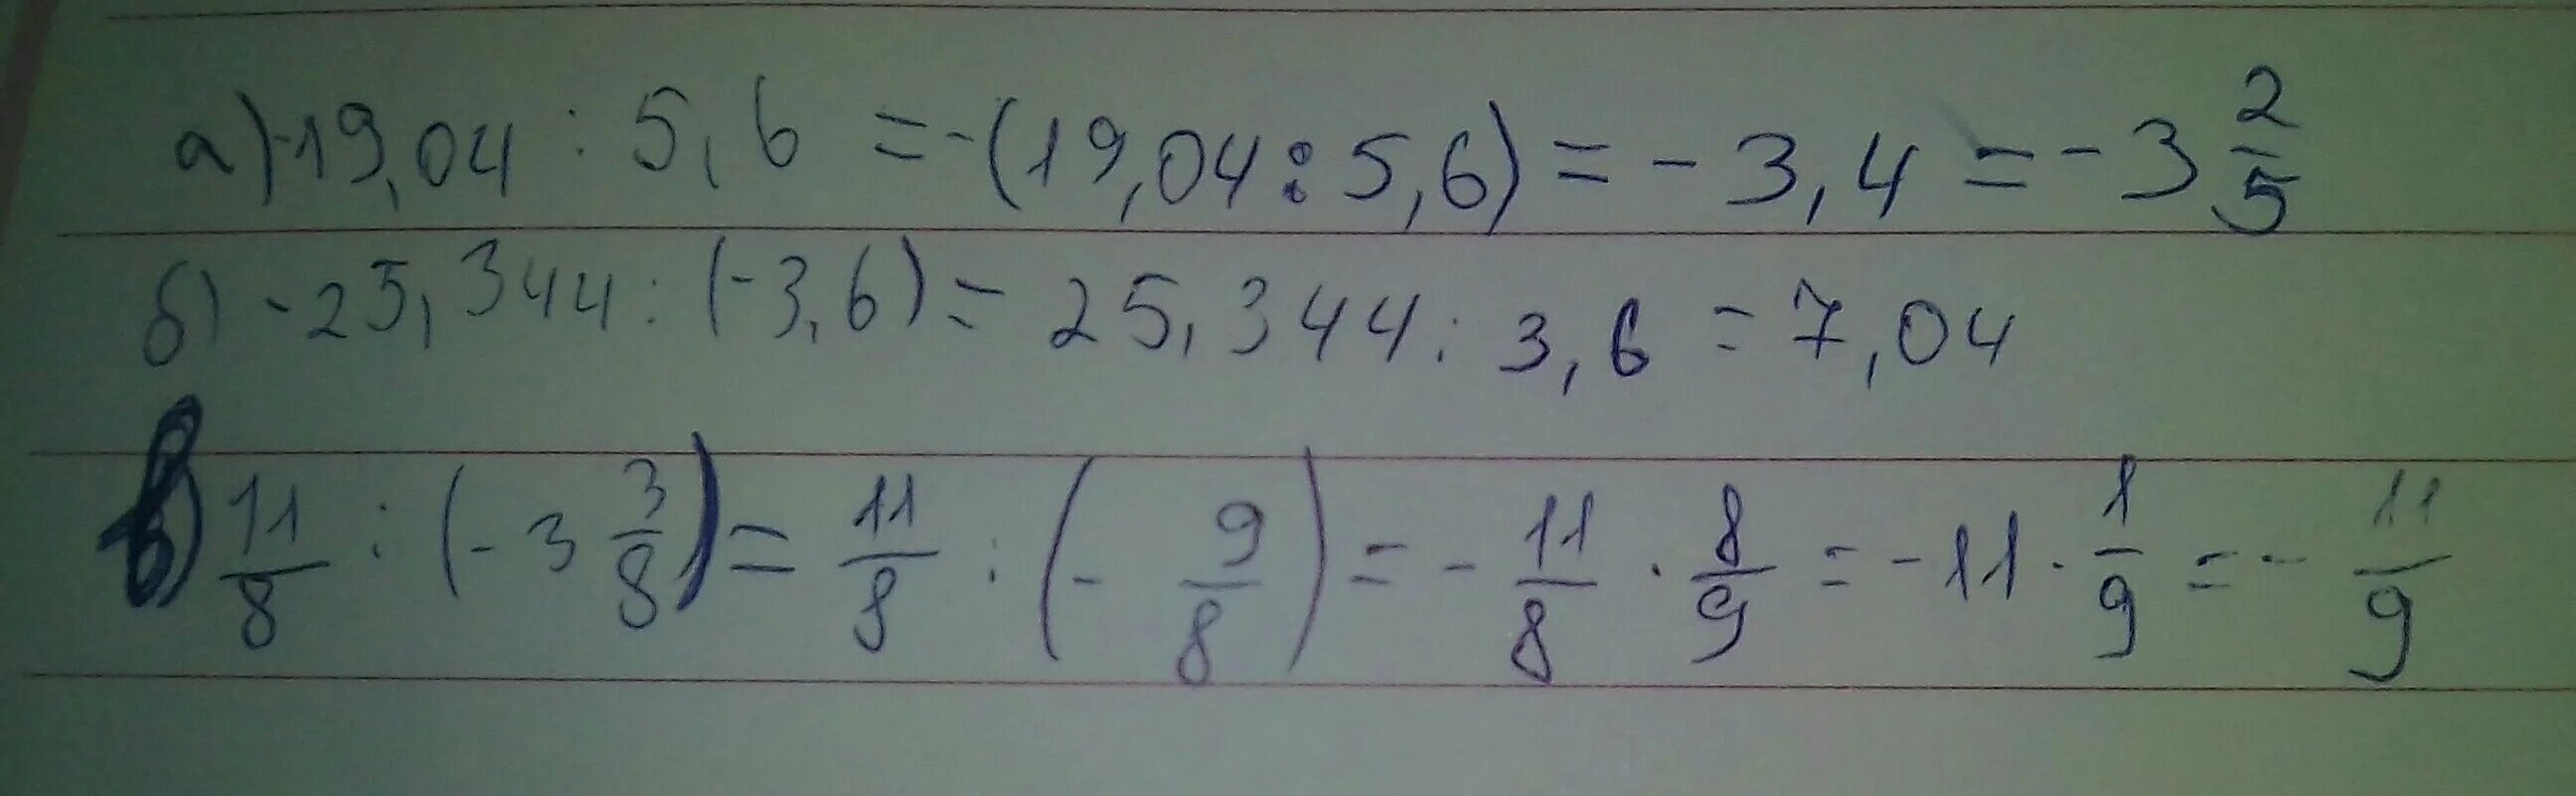 а) -19,04 : 5,6 = -(19,04 : 5,6) = - 3,4 = - 3 2/5
б) - 25,344 : (-3,6) = 25,344 : 3,6 = 7,04
в) 11/8 : (- 3 3/8) = 11/8 : (- 9/8) = - 11/8 · 8/9 = - 11 · 1/9 = - 11/9